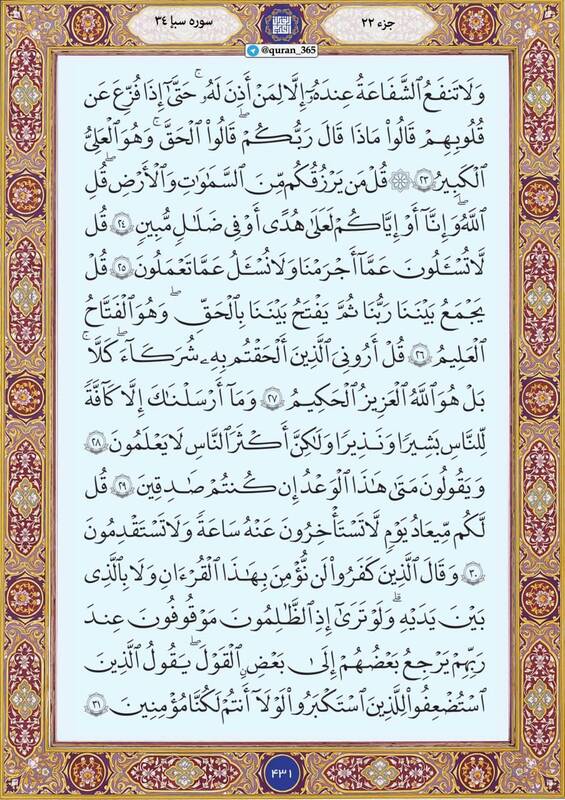 جزء ۲۲
سوره سبإ ۳۴
@quran_365
وَلَا تَنفَعُ ٱلشَّفَٰعَةُ عِندَهُۥٓ إِلَّا لِمَنۡ أَذِنَ لَهُۥۚ حَتَّىٰٓ إِذَا فُزِّعَ عَن
قُلُوبِهِمۡ قَالُواْ مَاذَا قَالَ رَبُّكُمۡۖ قَالُواْ ٱلۡحَقَّۖ وَهُوَ ٱلۡعَلِيُّ
ٱلۡكَبِيرُ ۲۳ ۞ قُلۡ مَن يَرۡزُقُكُم مِّنَ ٱلسَّمَٰوَٰتِ وَٱلۡأَرۡضِۖ قُلِ
ٱللَّهُۖ وَإِنَّآ أَوۡ إِيَّاكُمۡ لَعَلَىٰ هُدًى أَوۡ فِي ضَلَٰلٖ مُّبِينٖ ۲۴ قُل
لَّا تُسۡـَٔلُونَ عَمَّآ أَجۡرَمۡنَا وَلَا نُسۡـَٔلُ عَمَّا تَعۡمَلُونَ ۲۵ قُلۡ
يَجۡمَعُ بَيۡنَنَا رَبُّنَا ثُمَّ يَفۡتَحُ بَيۡنَنَا بِٱلۡحَقِّۖ وَهُوَ ٱلۡفَتَّاحُ
ٱلۡعَلِيمُ ۲۶ قُلۡ أَرُونِيَ ٱلَّذِينَ أَلۡحَقۡتُم بِهِۦ شُرَكَآءَۖ كَلَّاۚ
بَلۡ هُوَ ٱللَّهُ ٱلۡعَزِيزُ ٱلۡحَكِيمُ ۲۷ وَمَآ أَرۡسَلۡنَٰكَ إِلَّا كَآفَّةٗ
لِّلنَّاسِ بَشِيرٗا وَنَذِيرٗا وَلَٰكِنَّ أَكۡثَرَ ٱلنَّاسِ لَا يَعۡلَمُونَ ۲۸
وَيَقُولُونَ مَتَىٰ هَٰذَا ٱلۡوَعۡدُ إِن كُنتُمۡ صَٰدِقِينَ ۲۹ قُل
لَّكُم مِّيعَادُ يَوۡمٖ لَّا تَسۡتَـٔۡخِرُونَ عَنۡهُ سَاعَةٗ وَلَا تَسۡتَقۡدِمُونَ
۳۰ وَقَالَ ٱلَّذِينَ كَفَرُواْ لَن نُّؤۡمِنَ بِهَٰذَا ٱلۡقُرۡءَانِ وَلَا بِٱلَّذِي
بَيۡنَ يَدَيۡهِۗ وَلَوۡ تَرَىٰٓ إِذِ ٱلظَّٰلِمُونَ مَوۡقُوفُونَ عِندَ
رَبِّهِمۡ يَرۡجِعُ بَعۡضُهُمۡ إِلَىٰ بَعۡضٍ ٱلۡقَوۡلَ يَقُولُ ٱلَّذِينَ
ٱسۡتُضۡعِفُواْ لِلَّذِينَ ٱسۡتَكۡبَرُواْ لَوۡلَآ أَنتُمۡ لَكُنَّا مُؤۡمِنِينَ ۳۱
۴۳۱